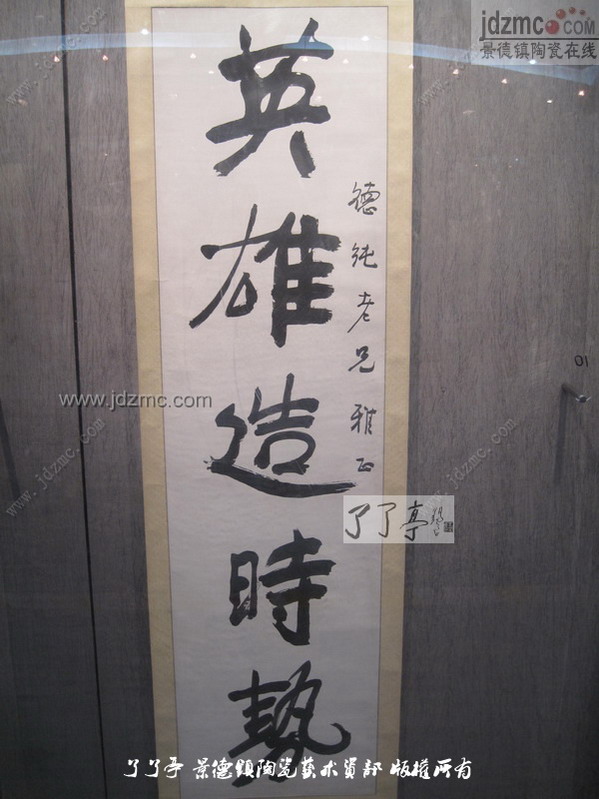 英雄造時勢
德純老兄雅正
01
jdzmc.com
景德镇陶瓷在线
www.jdzmc.com
www.jdzmc.com
www.jdzmc.com
www.jdzmc.com
www.jdzmc.com
了了亭
了了亭 景德镇陶瓷艺术资讯 版权所有